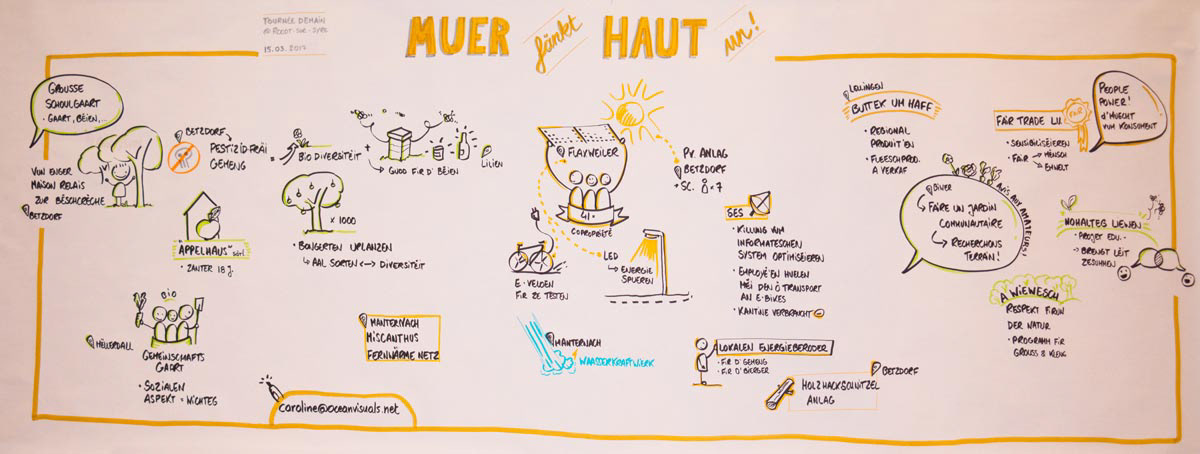 TOURNÉE DEMAIN
@ ROODT-SUR-SYRE
15.03.2017
MUER fänkt HAUT un!
GROUSSE
SCHOULGAART
• GAART, BEIEN,...
VUN ENGER
MAISON RELAIS
ZUR BËSCHCRÈCHE
BETZDORF
BETZDORF
PESTIZID-FRÄI
GEMENG
BIODIVERSITÉIT
+
→ GUDD FIR D'BEIEN
LILIEN
x 1000
• BONGERTEN UPLANZEN
↳ AAL SORTEN <--> DIVERSITÉIT
APPELHAUS SÀRL
• ZANTER 18 J.
BIO
HËLLERDALL
GEMEINSCHAFTS
GAART
• SOZIALEN
ASPEKT = WICHTEG
MANTERNACH
MISCANTHUS
FERNWÄRME NETZ
caroline@oceanvisuals.net
FLAXWEILER
41.
COPROPRIÉTÉ
PV. ANLAG
BETZDORF
+ SC. x 7
E-VELOEN
FIR ZE TESTEN
LED
↳ ENERGIE
SPUEREN
MANTERNACH
WAASSERKRAFTWIERK
SES
• KILLING VUM
INFORMATESCHEN
SYSTEM OPTIMISÉIEREN
• EMPLOYÉ'EN HUELEN
MÉI DEN Ö TRANSPORT
AN E-BIKES
• KANTINE VERBRAUCHT
LOKALEN ENERGIEBERODER
• FIR D'GEMENG
• FIR D'BIERGER
HOLZHACKSCHNITZEL
ANLAG
BETZDORF
LELLINGEN
BUTTEK UM HAFF
• REGIONAL
PRODUITEN
• FLEESCHPROD.
A VERKAF
FAIR TRADE LU.
FAIR
• SENSIBILISÉIEREN
• FAIR → MËNSCH
→ ËMWELT
PEOPLE
POWER!
D'MUECHT
VUM KONSUMENT
BIWER
FAIRE UN JARDIN
COMMUNAUTAIRE
↳ RECHERCHONS
TERRAIN!
AVIS AUX AMATEURS!
NOHALTEG LIEWEN
• PROJET EDU.
→ BRENGT LËIT
ZESUMMEN
A WIEWESCH
RESPEKT FIRUN
DER NATUR
• PROGRAMM FIR
GROUSS & KLENG